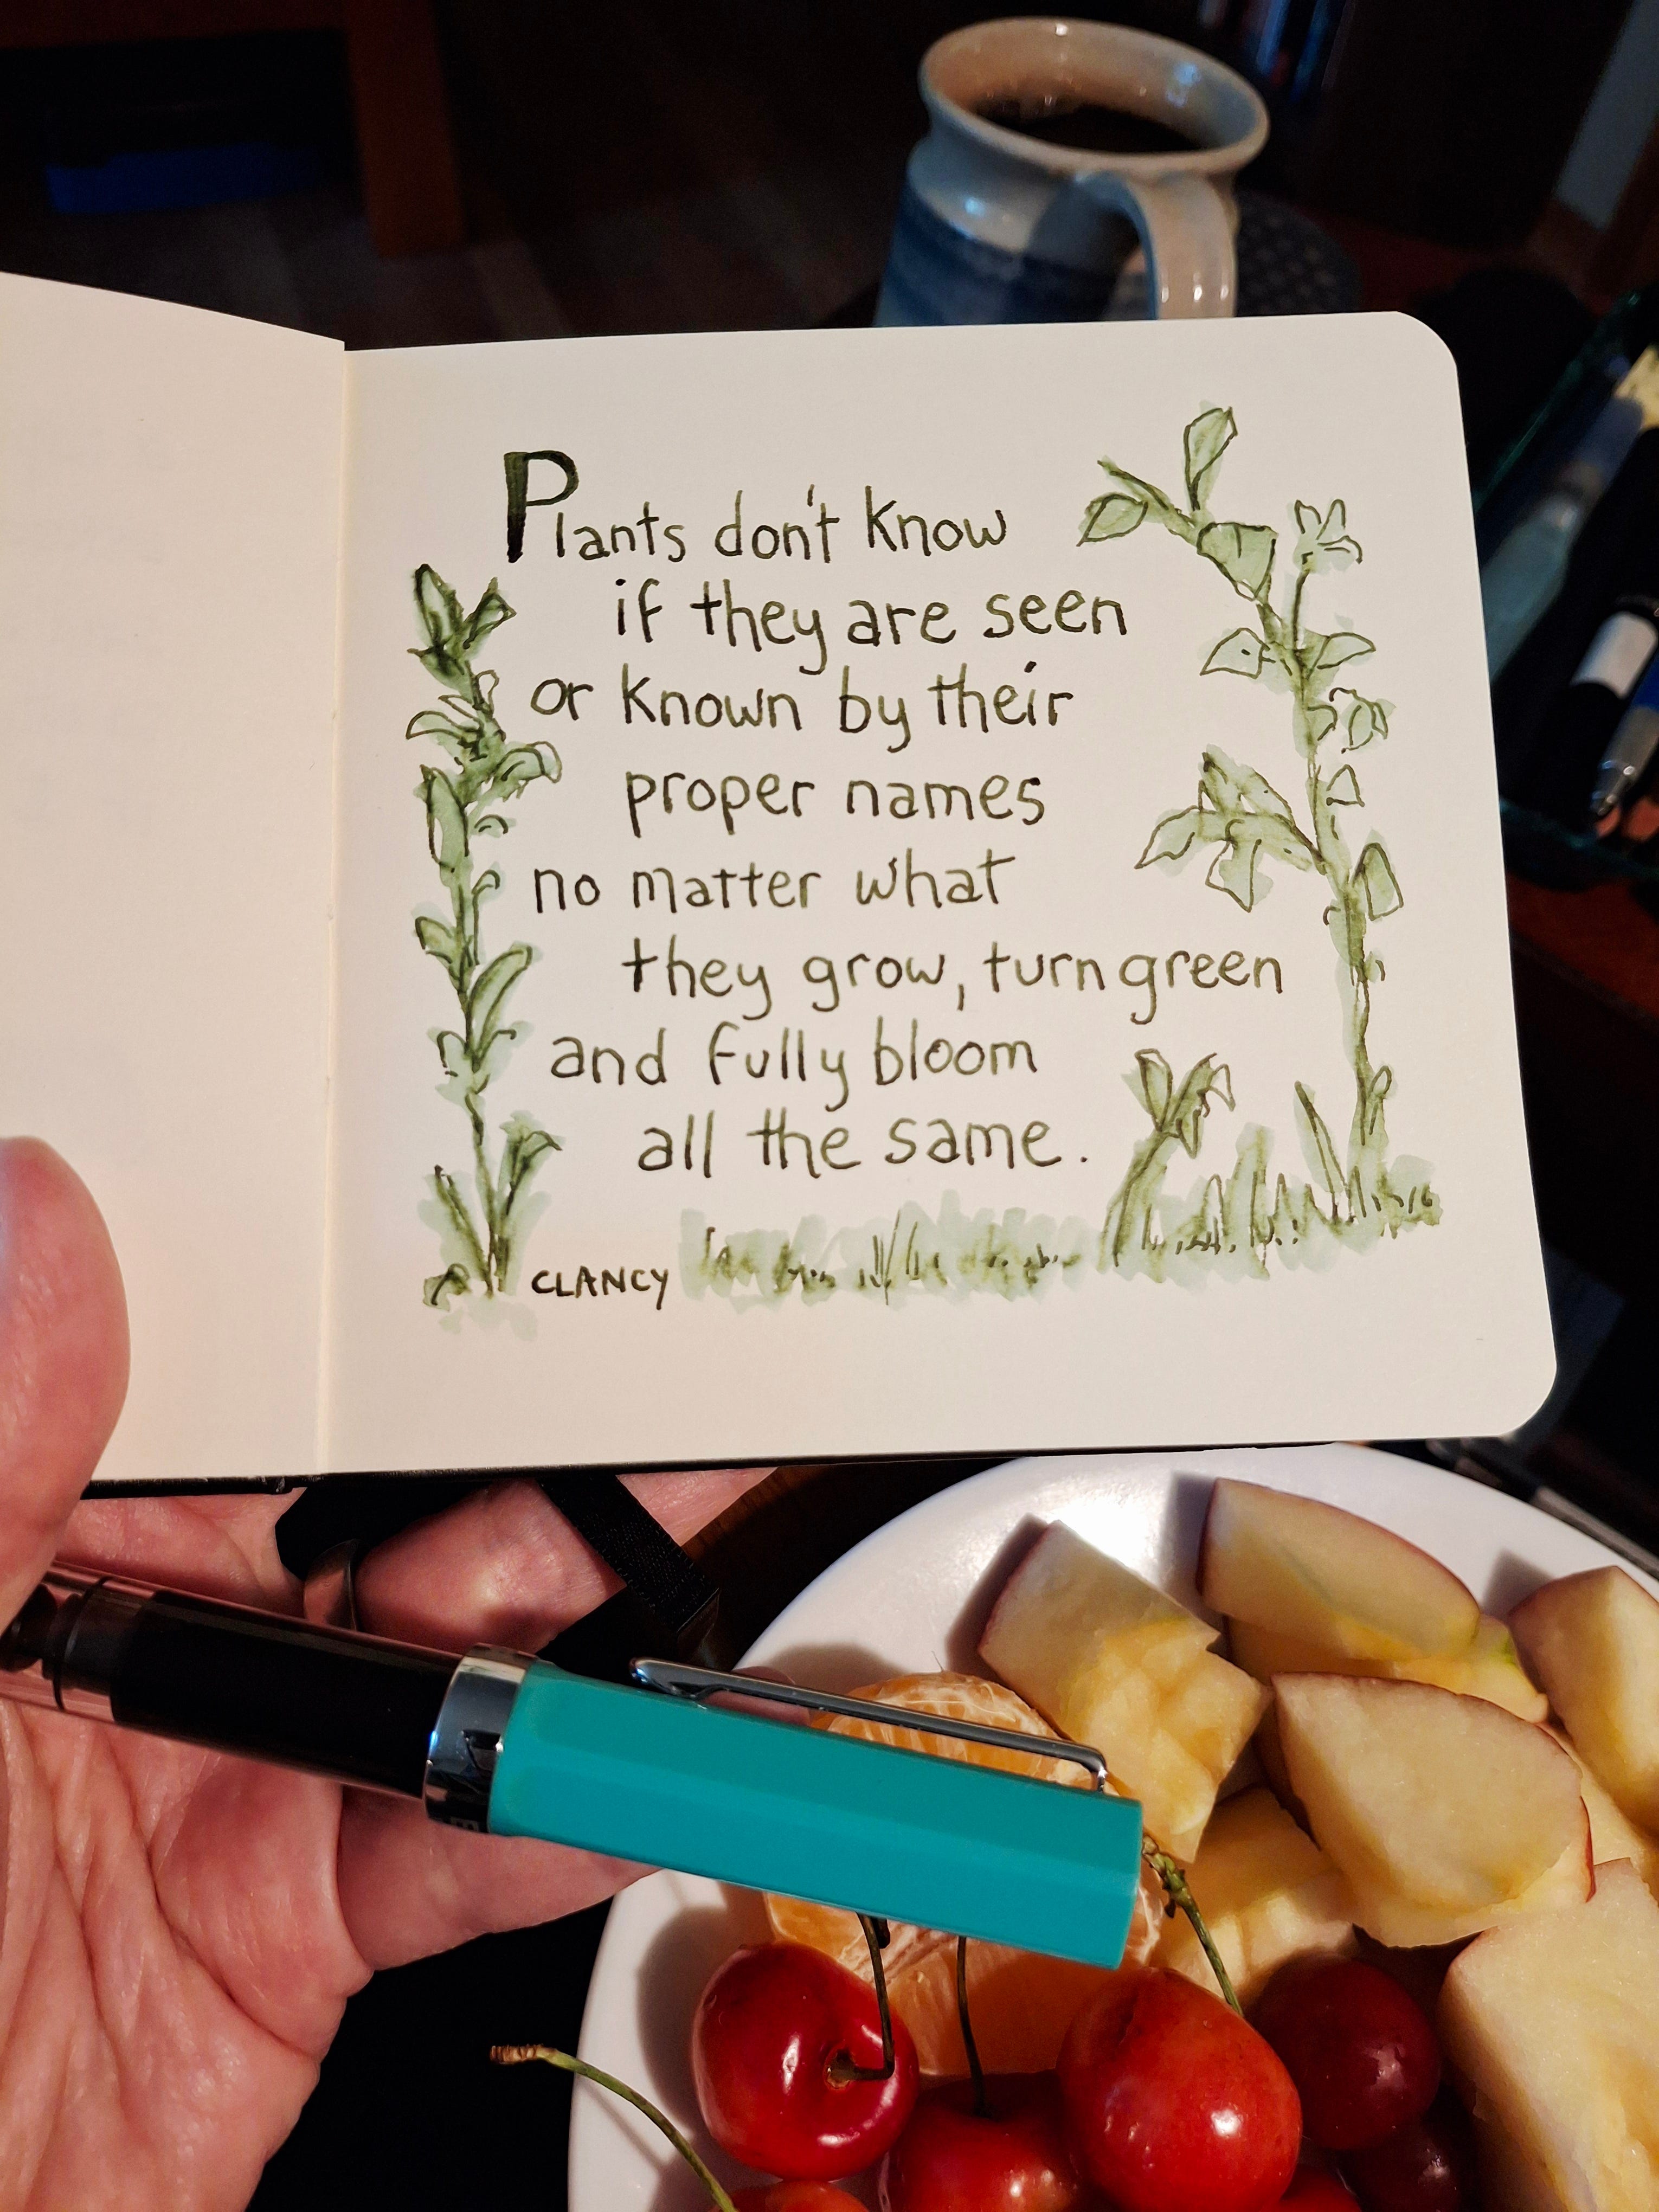 Plants don't know
if they are seen
or known by their
proper names
no matter what
they grow, turn green
and fully bloom
all the same.
CLANCY